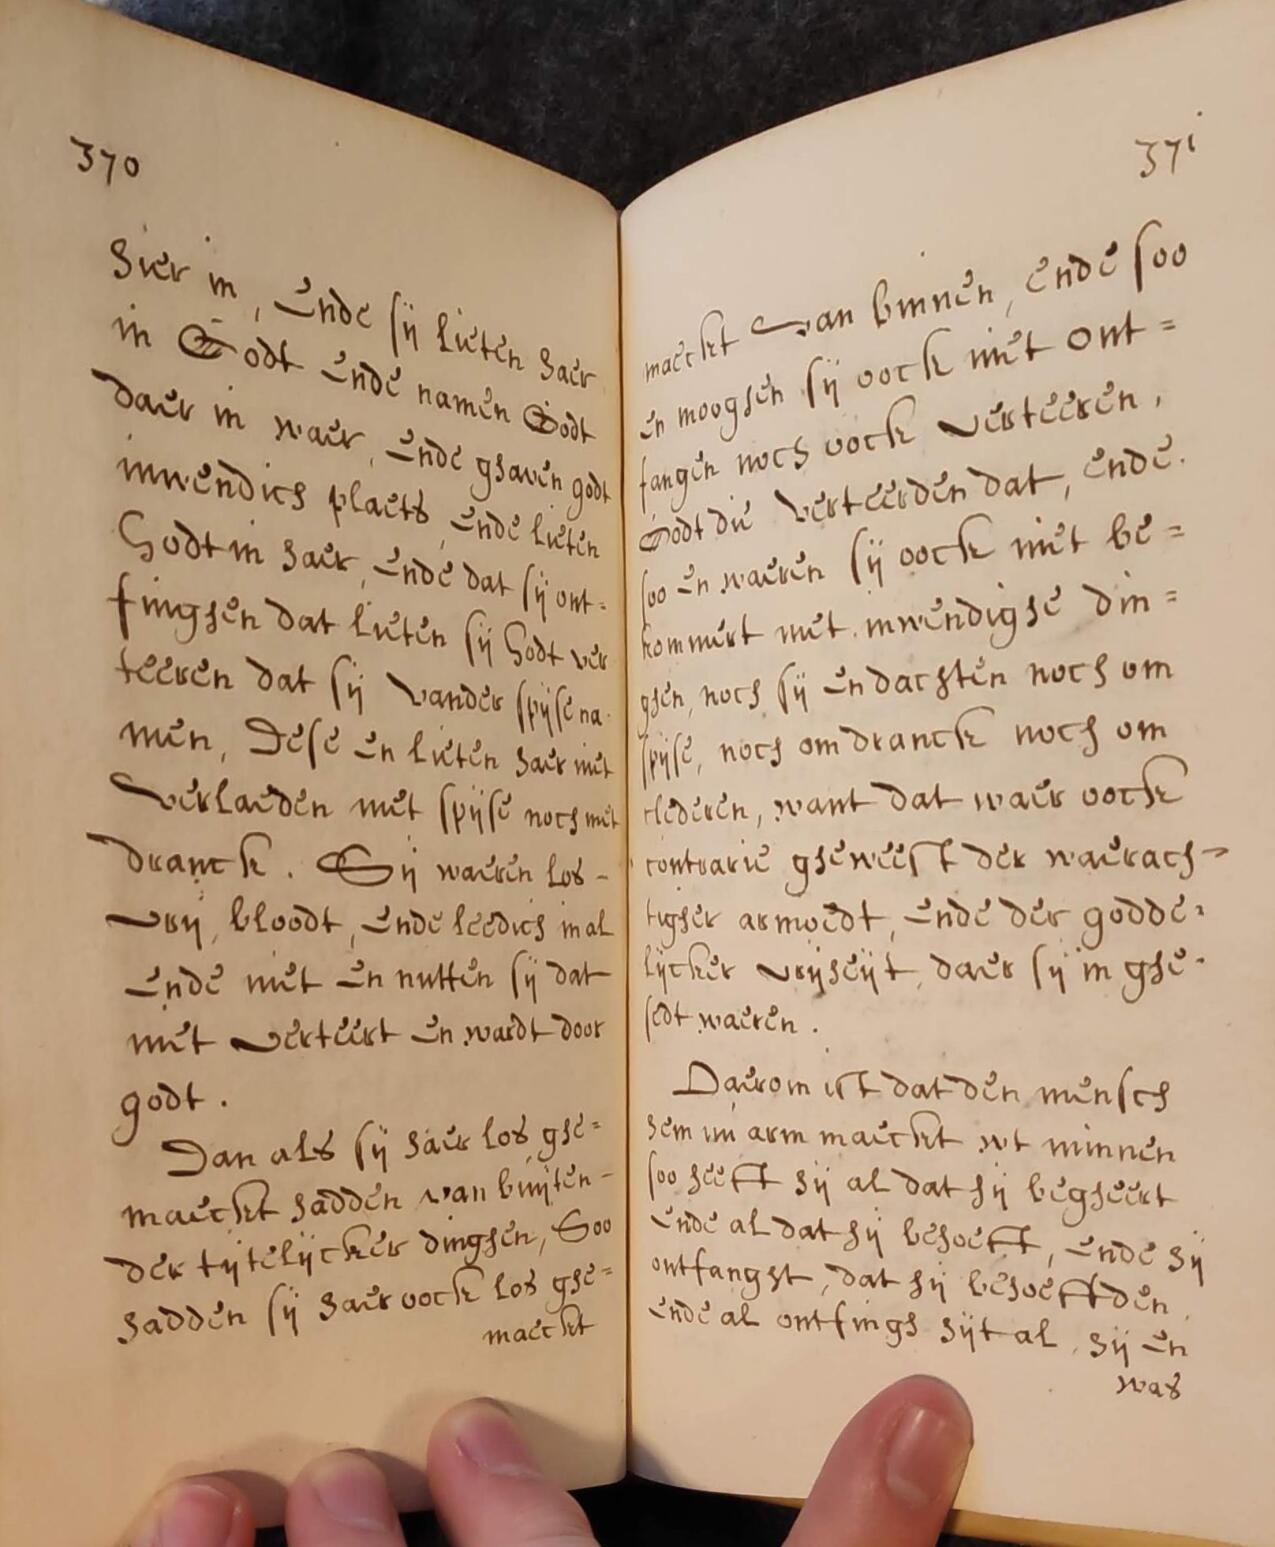 370
hier in, ende sij lieten haer
in Godt ende namen Godt
daer in waer, ende ghaven godt
inwendich plaets, ende lieten
Godt in haer, ende dat sij ont=
finghen dat lieten sij Godt ver
teeren dat sij vander spijse na-
men, Dese en lieten haer niet
verlaeden met spijse noch met
dranck. Sij waeren los-
vrij, bloodt, ende leedich in al
ende niet en nutten sij dat
niet verteert en wardt door
godt.
Dan als sij haer los ghe=
maeckt hadden van buijten-
der tijtelijcker dinghen, Soo
hadden sij haer oock los ghe=
maeckt
371
maeckt van binnen, ende soo
en mooghen sij oock niet ont=
fangen noch oock verteeren,
Godt die verteerden dat, ende.
soo en waeren sij oock niet be=
kommert met inwendighe din=
ghen, noch sij en dachten noch om
spijse, noch om dranck noch om
clederen, want dat waer oock
contrarie gheweest der waerach-
tigher armoedt, ende der godde=
lijcker vrijheijt, daer sij in ghe-
sedt waeren.
Daerom ist dat den mensch
hem arm maeckt wt minnen
soo heeft hij al dat hij begheert
ende al dat hij behoeft, ende hij
ontfanght, dat hij behoeftden,
ende al ontfingh hijt al, hij en
was